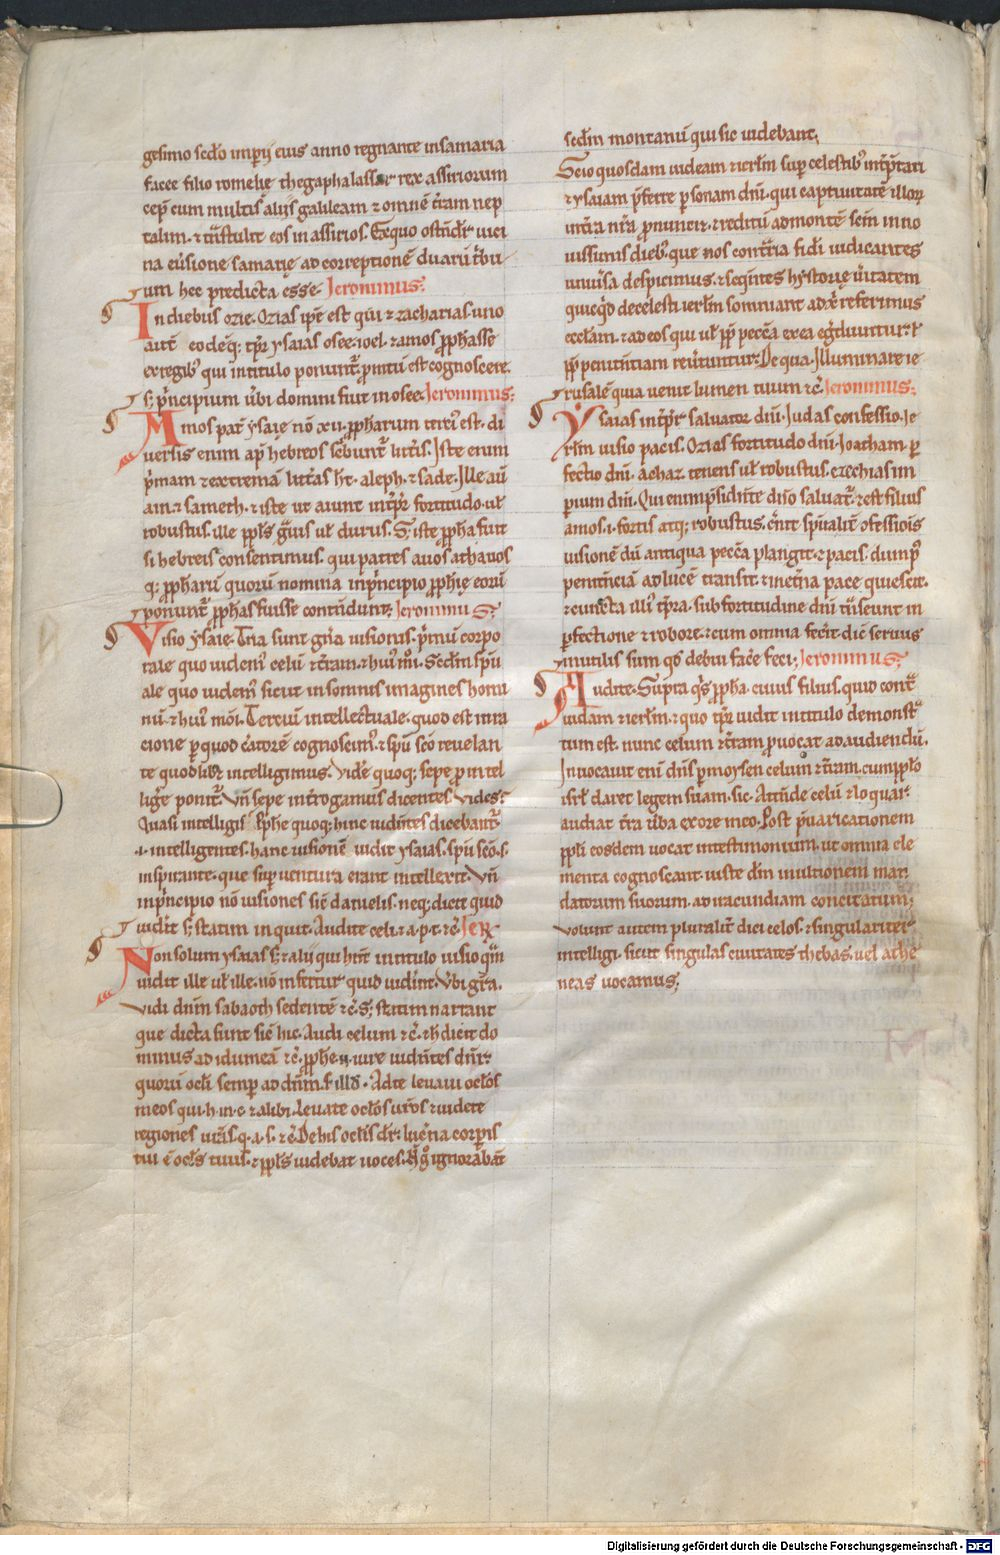 gesimo scd̄o imp̄ij eius anno regnante insamaria
facee filio romelię thegaphalassar rex assiriorum
cep̄ cum multis alijs galileam ⁊ omnē t̄ram nep
talim. ⁊ t̄nstulit eos in assirios. Exquo ostn̄dit̄ uici
na eūsione samarię ad correptionē duarū t̄bu
um hec predicta esse. Jeronimus.
In diebus ozie. Ozias ip̄e est qui ⁊ zacharias. uno
autē eodēq; tp̄r ysaias osee. ioel. ⁊ amos p̄phasse
exregib' qui intitulo ponunt̄ promtū est cognoscere.
s; p̄ncipium ūbi domini fuit in osee. Jeronimus:
Amos pat̄ ysaię nō xii. p̄pharum terci' est. di
uersis enim ap̄ hebreos sc̄bunt̄ litt̄is. Iste enim
p̄mam ⁊ extremā litt̄as ht̄. aleph. ⁊ sade. Ille aū
ain. ⁊ sameth. ⁊ iste ut aiunt int̄p̄t̄ fortitudo. ut
robustus. ille pp̄ls ḡuis ut durus. S; iste p̄pha fuit
si hebreis consentimus. qui patres auos athauos
q; p̄pharū quorū nomina inp̄ncipio p̄phię eorū
ponunt̄ p̄phas fuisse contn̄dunt; Jeronimus:
Visio ysaie. Tria sunt gn̄a uisionis. p̄mū corpo
rale quo uidem' celū ⁊ t̄ram. ⁊ hui' m̄oi. Sed̄m sp̄u
ale quo uidem' sicut in somnis imagines homi
nū. ⁊ hui' mōi. Terciū intellectuale. quod est in ra
cione p̄ quod c̄atorē cognoscim'. ⁊ sp̄u sc̄o reuelan
te quodlib; intelligimus. Vidē quoq; sepe p̄ intel
ligē ponit̄. Vn̄ sepe int̄rogamus dicentes vides?
Quasi intelligis? P̄phe quoq; hinc uidn̄tes dicebant̄
.i. intelligentes. hanc uisionē uidit ysaias. sp̄u sc̄o. s.
inspirante. que sup̄ ventura erant intellexit. Vn̄
inp̄ncipio nō uisiones sic̄ danielis. neq; dicit quid
uidit s; statim inquit. Audite celi ⁊ a. p. t. ⁊c̄ Jer
Non solum ysaias s; ⁊ alij qui hn̄t intitulo uisio quā
uidit ille ut ille. nō infert̄ quid uidint. Ubi gr̄a.
Vidi dn̄m sabaoth sedentē ⁊c̄. S; statim narrant
que dicta sunt sic̄ hic. Audi celum ⁊c̄. ⁊ h dicit do
minus ad idumeā ⁊c̄. p̄phe n. uire uidn̄tes dn̄r.
quorū oc̄li semp̄ ad dn̄m. ⁊ illd. Ad te leuaui oc̄los
meos qui. h. in. c. ⁊ alibi. Leuate oc̄los ur̄os ⁊ uidete
regiones ut̄is. q. a. s. ⁊c̄. De his oc̄lis dr̄. luc̄na corp̄is
tui ē oc̄ls tuus. ⁊ pp̄ls uidebat uoces. H̄ ḡ ignorabāt
sed̄m montanū qui sic uidebant;
Scio quosdam iudeam ⁊ ierl̄m sup̄ celestib' int̄p̄tari
⁊ ysaiam p̄ferre p̄sonam dn̄i. qui captiuitatē illor̄
int̄ra nr̄a p̄nunciet. ⁊ reditū ad montē scm̄ in no
uissimis dieb'. que nos contr̄ia fidi iudicantes
uniūsa despicimus. ⁊ seqn̄tes hystorię ūitatem
quicq̄d de celesti ierl̄m somniant ad xp̄ referimus
ecclam. ⁊ ad eos qui ut pp̄ pecc̄a ex ea egd̄iuntur. ł
pp̄ penitn̄tiam reūtuntur. De qua. Illuminare ie
rusalē quia uenit lumen tuum ⁊c̄. Jeronimus:
Ysaias int̄p̄t̄ saluator dn̄i. Iudas confessio. Ie
rl̄m uisio pacis. Ozias fortitudo dn̄i. Ioatham p̄
fectio dn̄i. Achaz. tenens ut robustus. Ezechias im
pium dn̄i. Qui enim p̄sidn̄te dn̄o saluat̄. ⁊ est filius
amos. i. fortis atq; robustus. c̄nit sp̄ualit̄ ↄfessiois
uisionē dū antiqua pecc̄a plangit. ⁊ pacis. dum p'
penitn̄ciā ad lucē transit. ⁊ inet̄na pace quiescit.
⁊ cuncta illi' tp̄ra. sub fortitudine dn̄i t̄nseunt in
p̄fectione ⁊ robore. ⁊ cum omnia fecit. dic̄ seruus
inutilis sum qd̄ debui facē feci; Jeronimus;
Audite. Supra qs̄ p̄pha. cuius filius. quid cont̄
iudam ⁊ ierl̄m. ⁊ quo tp̄r uidit in titulo demonst̄
tum est. nunc celum ⁊ t̄ram p̄uocat ad audiendū.
Inuocauit eni dn̄s p̄ moysen celum ⁊ t̄ram. cum pp̄lo
isrl̄ daret legem suam. sic. Attn̄de celū ⁊ loquar.
audiat t̄ra ūba ex ore meo. Post p̄uaricationem
pp̄li eosdem uocat in testimonium. ut omnia ele
menta cognoscant iuste dm̄ in ultionem man
datorum suorum. ad iracundiam concitatum;
Volunt autem pluralit̄ dici celos. ⁊ singulariter
intelligi. sicut singulas ciuitates thebas. uel athe
neas uocamus;
Digitalisierung gefördert durch die Deutsche Forschungsgemeinschaft - DFG